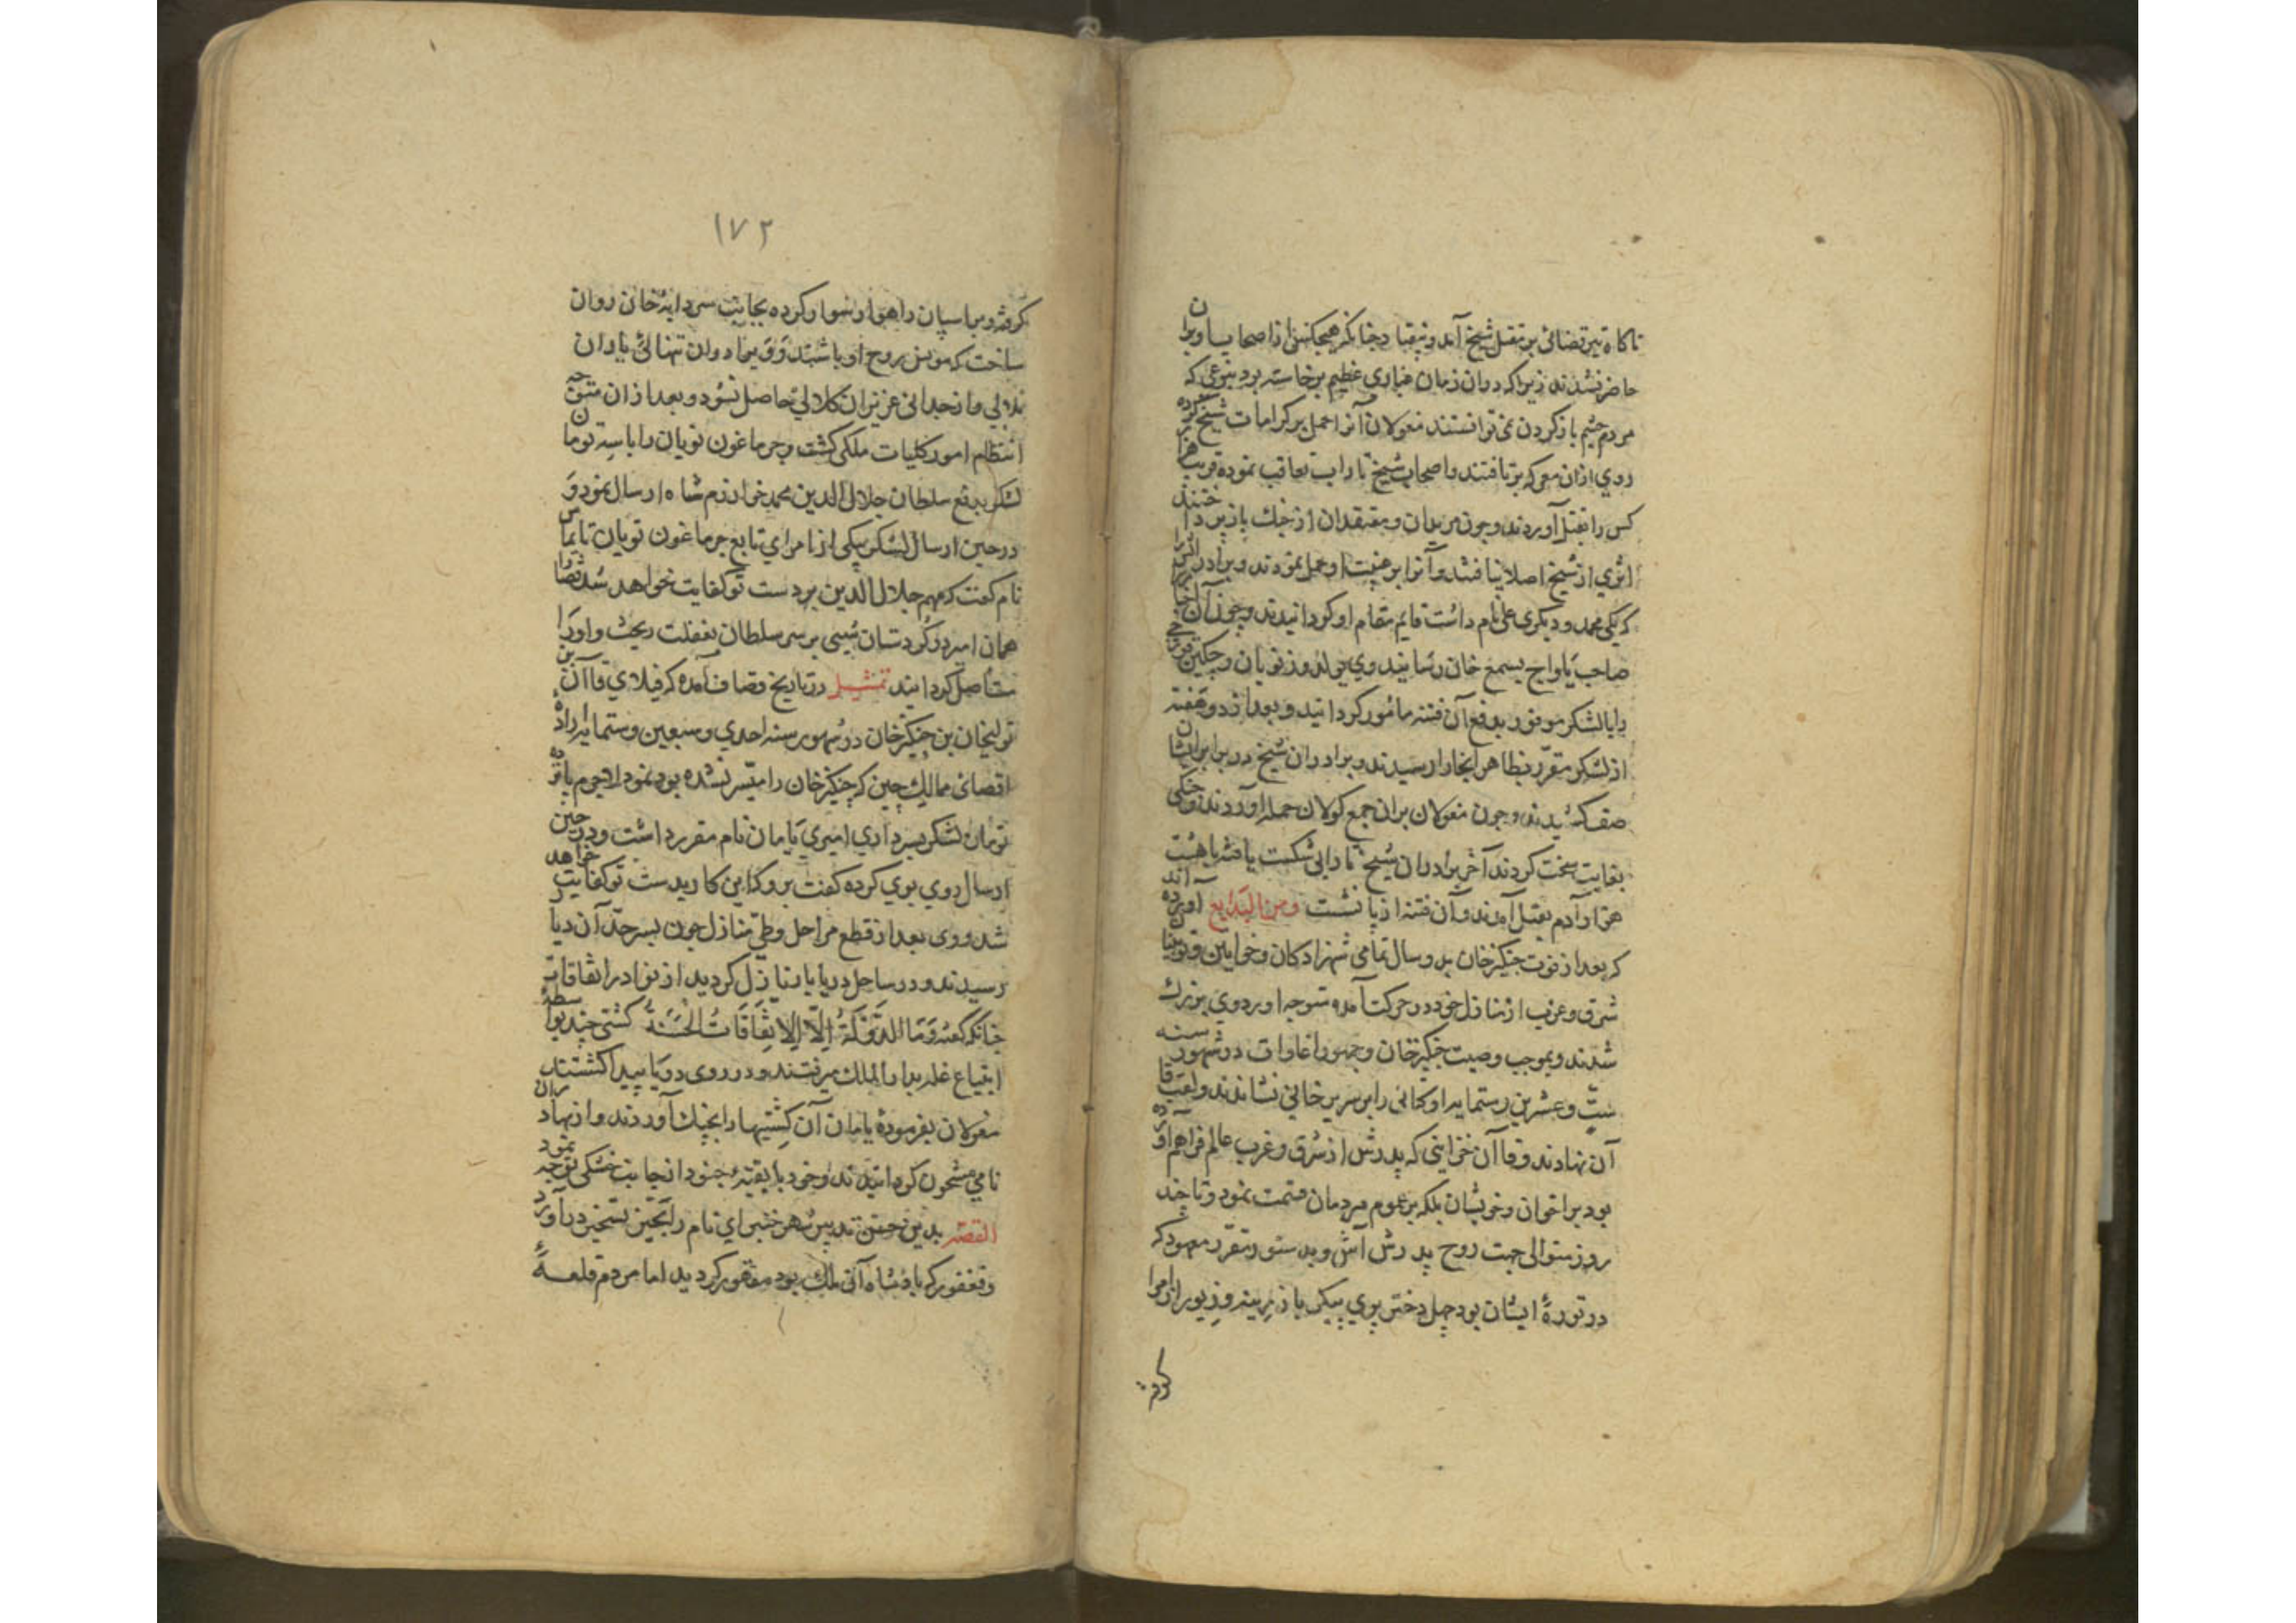 ناکاه تیر قضائی بر مقتل شیخ آمد و بیفتاد چنانکه هیچکس از اصحاب او بران
حاضر نشدند زیرا که دران زمان غباری عظیم برخاسته بود بنوعی که
مردم چشم باز کردن نمی توانستند مغولان آنرا حمل بر کرامات شیخ کرده
روی ازان معرکه برتافتند و اصحاب شیخ تارابی تعاقب نموده قریب هزار
کس را بقتل آوردند و چون مریدان و معتقدان از جنك باز پرداختند
اثری از شیخ اصلا نیافتند و آنرا بر غیبت او حمل نمودند و برادرانش را
که یکی محمد و دیگری علی نام داشت قایم مقام او کردانیدند و چون آن اخبار
صاحب یلواج بسمع خان رسانید وی یلدوز نویان و چکین قورچی
را با لشکر موفور بدفع آن فتنه مامور کردانید و بعد از دو هفته
از لشکر مقرر بظاهر بخارا رسیدند و برادران شیخ در برابر ایشان
صف کشیدند و چون مغولان بران جمع کولان حمله آوردند جنکی
بغایت سخت کردند آخر برادران شیخ تارابی شکست یافته با بیست
هزار آدم بقتل آمدند و آن فتنه از پا نشست ومن البدایع آورده اند
که بعد از فوت چنکیز خان بدو سال تمامی شهزادکان و خوانین و نوینان
شرق و غرب از منازل خود در حرکت آمده متوجه اوردوی بزرك
شدند و بموجب وصیت چنکیز خان و جمهور اغاوات در شهور سنه
ست و عشرین و ستمایه اوکتای را بر سریر خانی نشاندند و لقب قا
آن نهادند و قاآن خزاینی که پدرش از شرق و غرب عالم فراهم آورده
بود بر اخوان و خویشان بلکه بر عموم مردمان قسمت نمود و تا چند
روز متوالی جهت روح پدرش آش و بدستور مقرر معهود که
در تورهٔ ایشان بود چهل دختر پری پیکر با زر زینه و زیور از امرا
کرفته
۱۷۲
کرفته و بر اسپان راهوار سوار کرده بجانب سردابهٔ خان روان
ساخت که مونس روح او باشند و در تنهائی یاران
ملالی و از جدائی عزیزان کلالی حاصل نشود و بعد ازان متوجه
انتظام امور کلیات ملکی کشت و جرماغون نویان را با سه تومان
لشکر بدفع سلطان جلال الدین محمد خوارزم شاه ارسال نمود و
در حین ارسال لشکر بیکی از امرای تابع جرماغون نویان تایماس
نام کفت که مهم جلال الدین بر دست تو کفایت خواهد شد قضا را
همان امیر در کردستان شبی بر سر سلطان بغفلت ریخت و او را
مستأصل کردانید تمثیل در تاریخ وصاف آمده که قبلای قاآن بن
تولیخان بن چنکیز خان در شهور سنه احدی و سبعین و ستمایه اراده
اقصای ممالك چین که چنکیز خان را میسر نشده بود نمود لاجرم پانزده
تومان لشکر بسرداری امیری بایان نام مقرر داشت و در حین
ارسال روی بوی کرده کفت برو که این کار بدست تو کفایت خواهد
شد و وی بعد از قطع مراحل و طی منازل چون بسرحد آن دیار
رسیدند و در ساحل دریا بار نازل کردید از نوادر اتفاقات
چنانکه کفته وَمَا الدَّوْلَةُ اِلَّا الاِتِّفَاقَاتُ الحَسَنَةُ کشتی چند بواسطهٔ
ابتیاع غله بدار الملك میرفتند و در روی دریا پیدا کشتند
مغولان بفرمودهٔ بایان آن کشتیها را بچنك آوردند و از بهادران
نامی مشحون کردانیدند و خود با بقیهٔ جنود از جانب خشکی توجه نمود
القصه بدین حسن تدبیر شهر خنسای نام را بحیز تسخیر درآورد
و فغفور که پادشاه آن ملك بود مقهور کردید اما مردم قلعهٔ